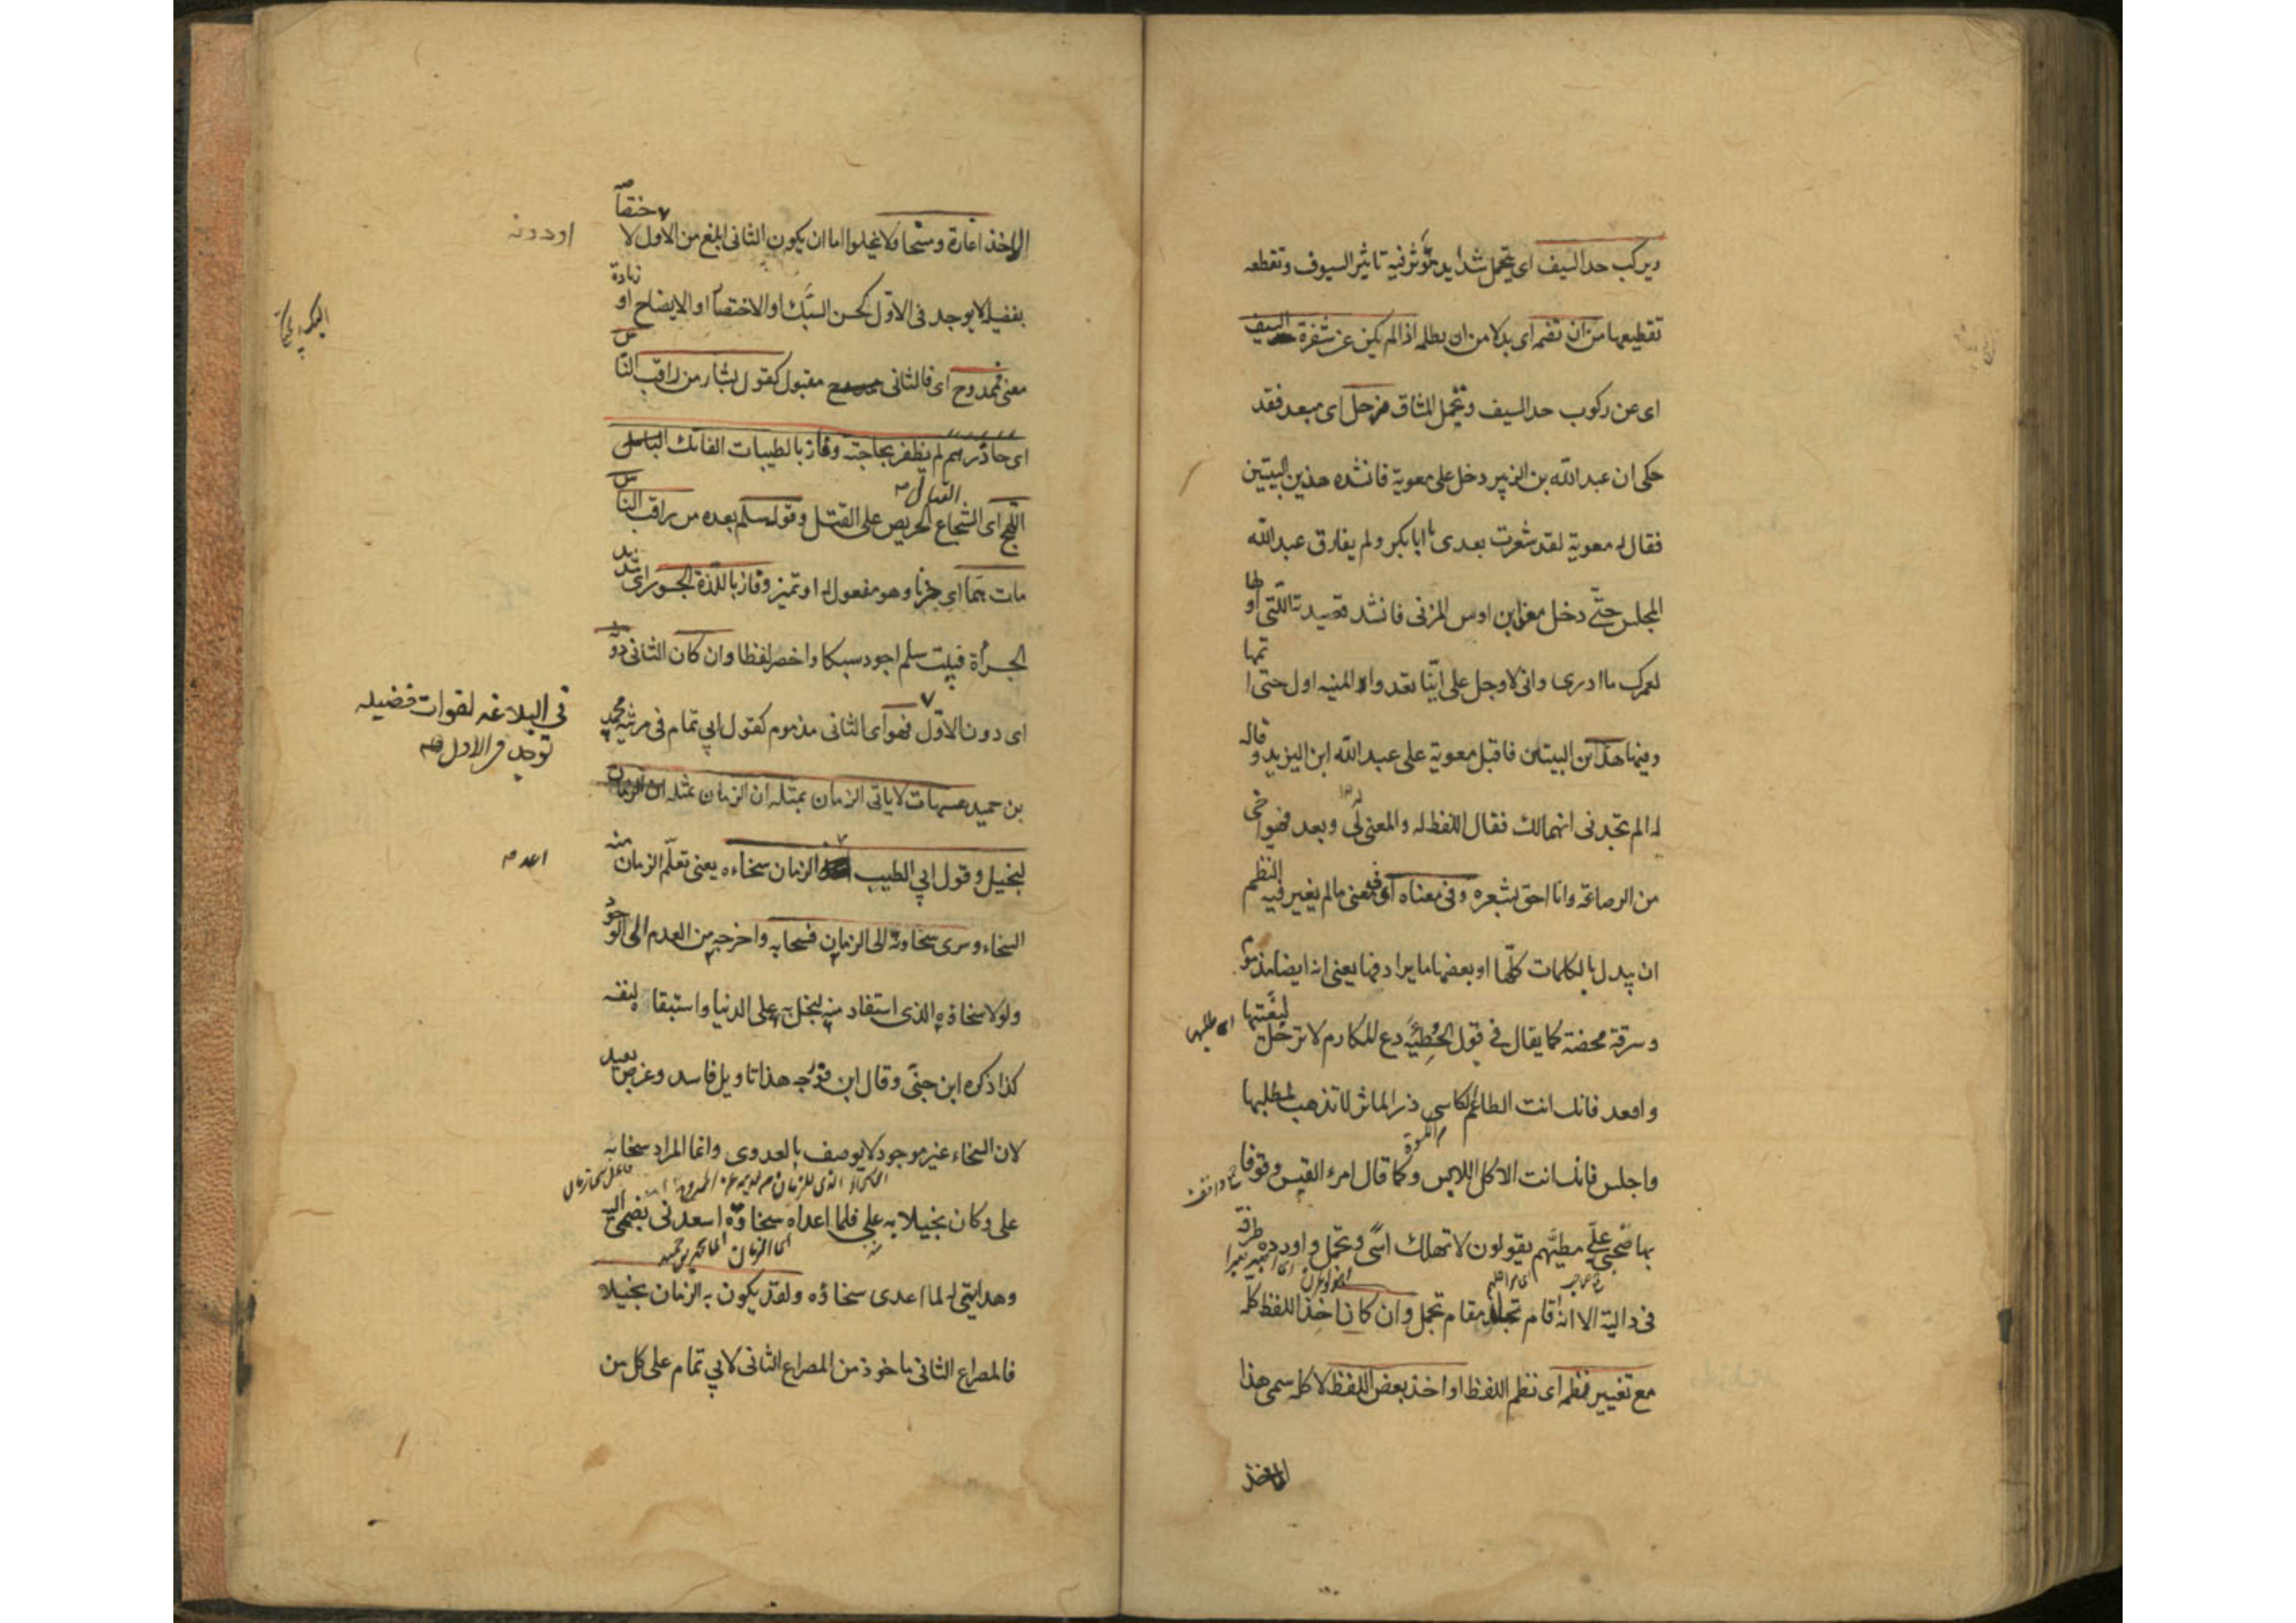 ويركب حد السيف اى يتحمل شدايد تؤثر فيه تاثير السيوف وتقطعه
تقطيعها من ان تضمه اى بدلا من ان يظلمه اذا لم يكن عن شفرة السيف
اى عن ركوب حد السيف وتحمل المشاق مزحل اى مبعد فقد
حكى ان عبد الله بن الزبير دخل على معوية فانشده هذين البيتين
فقال له معوية لقد شعرت بعدى يا ابا بكر ولم يفارق عبد الله
المجلس حتى دخل معن ابن اوس المزنى فانشد قصيدته التى اولها
لعمرك ما ادرى وانى لاوجل على اينا تعدوا المنيه اول حتى اتمها
وفيها هذين البيتين فاقبل معوية على عبد الله ابن الزبير وقاله
له الم تخبرنى انهما لك فقال اللفظ له والمعنى لى وبعد فهو اخى
من الرصاعة وانا احق بشعره وفى معناه اى فى معنى ما لم يغير فيه النظم
ان يبدل بالكلمات كلها او بعضها ما يرادفها يعنى انه ايضا مذموم
وسرقة محضة كما يقال فى قول الحطيئة دع المكارم لا ترحل لبغيتها
اى طلبها
واقعد فانك انت الطاعم الكاسى ذر الماثر لا تذهب لمطلبها
واجلس فانك انت الاكل اللابس وكما قال امرء القيس وقوفا
جمع واقف
بها صحبى على مطيهم يقولون لا تهلك اسى وتجمل واورده طرفة
فى دالية الا انه اقام تجلد مقام تجمل وان كان اخذ اللفظ كله
مع تغيير لنظمه اى نظم اللفظ او اخذ بعض اللفظ لا كله سمى هذا
الاخذ
الاخذ اغارة ومسخا ولا يخلوا اما ان يكون الثانى ابلغ من الاول لاختصاصه
بفضيلة لا يوجد فى الاول كحسن السبك او الاختصار او الايضاح او زيادة
معنى فممدوح اى فالثانى ممدوح مقبول كقول بشار من راقب الناس
اى حاذرهم لم يظفر بحاجته وفاز بالطيبات الفاتك
اللهج اى الشجاع الحريص على القتل وقول سلم بعده من راقب الناس
القتال
مات هما اى حزنا وهو مفعول له او تميز وفاز باللذة الجسور اى شديد
الجرأة فبيت سلم اجود سبكا واخصر لفظا وان كان الثانى دونه
اى دون الاول فهو اى الثانى مذموم كقول ابى تمام فى مرثية محمد
فى البلاغه لفوات فضيله
توجد فى الاول
بن حميد هيهات لا ياتى الزمان بمثله ان الزمان بمثله
لبخيل وقول ابى الطيب الزمان سخاءه يعنى تعلم الزمان منه
اعد
السخاء وسرى سخاوته الى الزمان فسخا به واخرجه من العدم الى الوجود
ولولا سخاؤه الذى استفاد منه لبخل به على الدنيا واستبقاه لنفسه
كذا ذكره ابن جنى وقال ابن فورجه هذا تاويل فاسد وغرض بعيد
لان السخاء غير موجود لا يوصف بالعدوى وانما المراد سخا به
على وكان بخيلا به على فلما اعداه سخاؤه اسعدنى بضمى اليه
وهدايتى له لما اعدى سخاؤه ولقد يكون به الزمان بخيلا
فالمصراع الثانى ماخوذ من المصراع الثانى لابى تمام على كل من